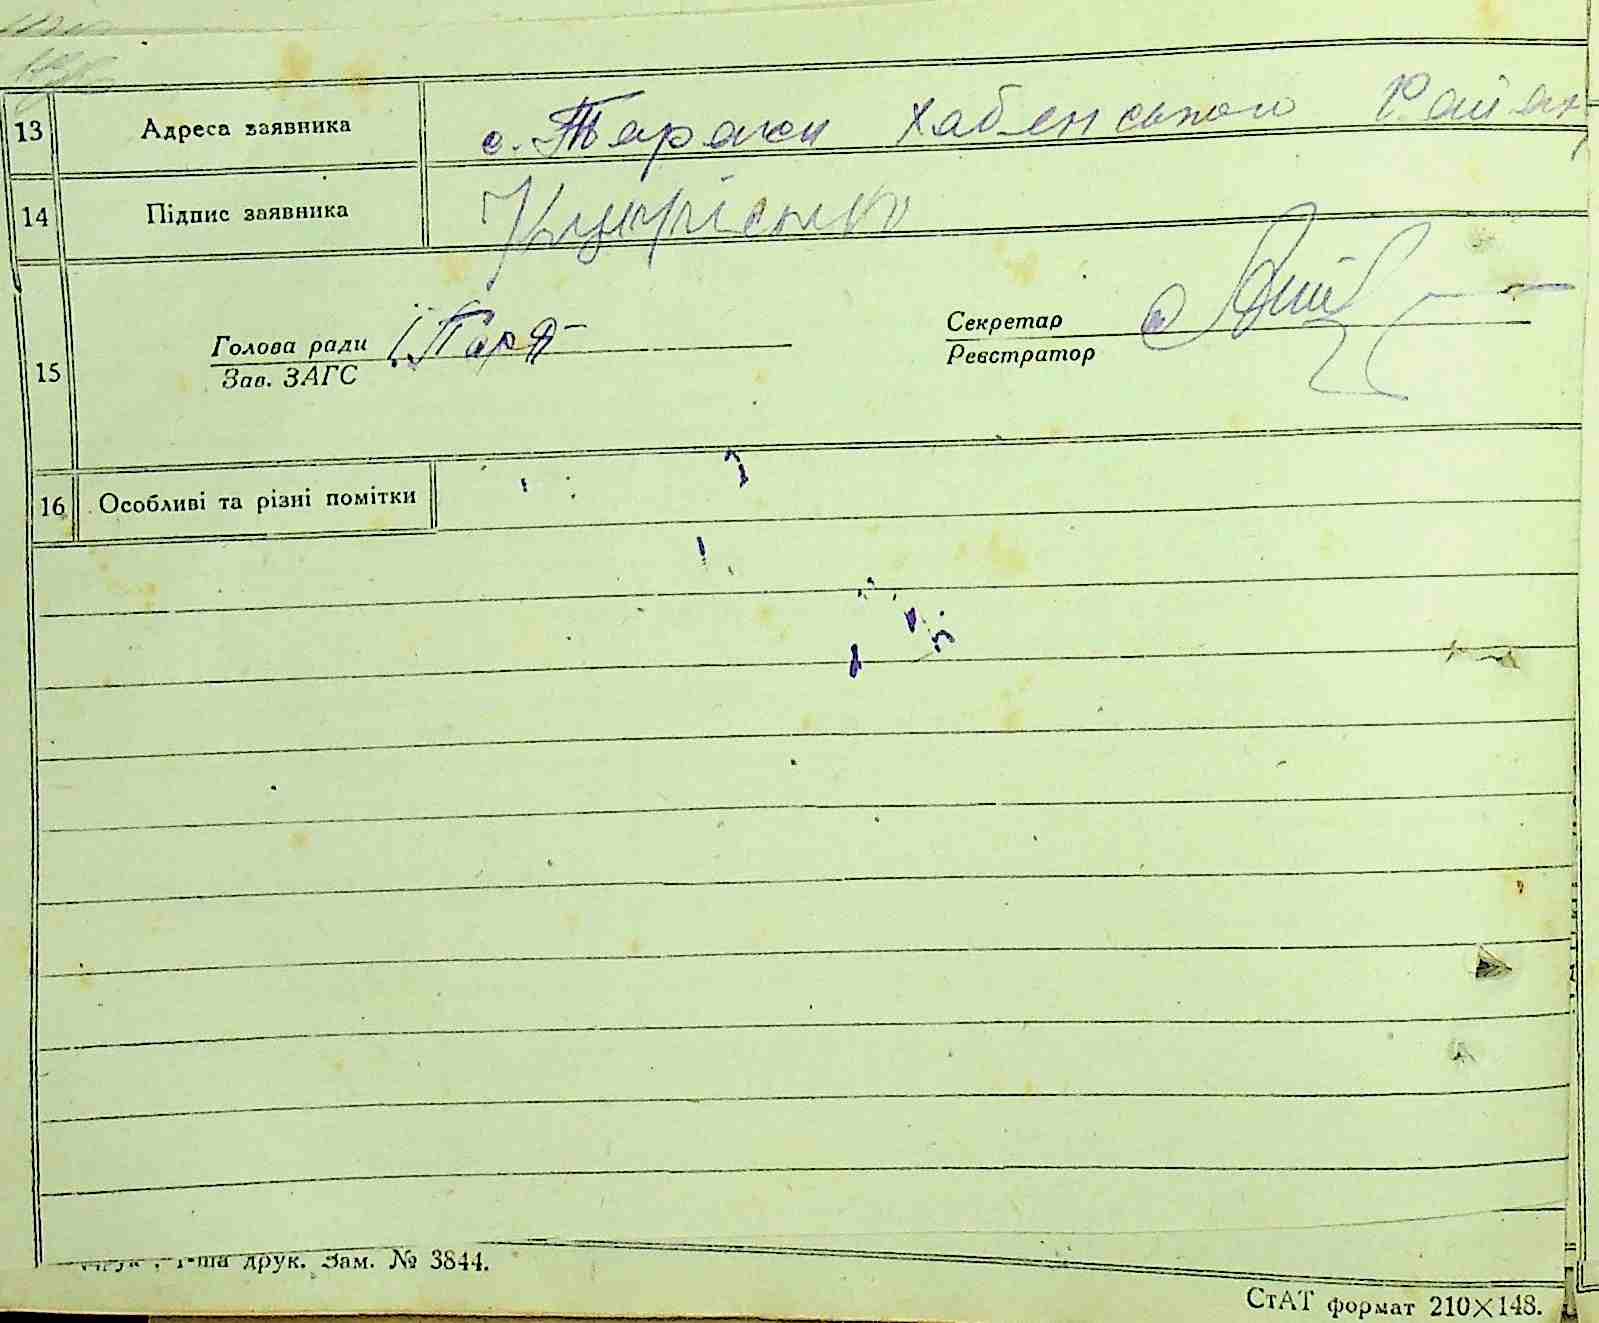 13 Адреса заявника с. Тараси Хабенського Район
14 Підпис заявника
15 Голова ради Секретар
Зав. ЗАГС Реєстратор
16 Особливі та різні помітки
друк. Зам. № 3844.
СтАТ формат 210×148.